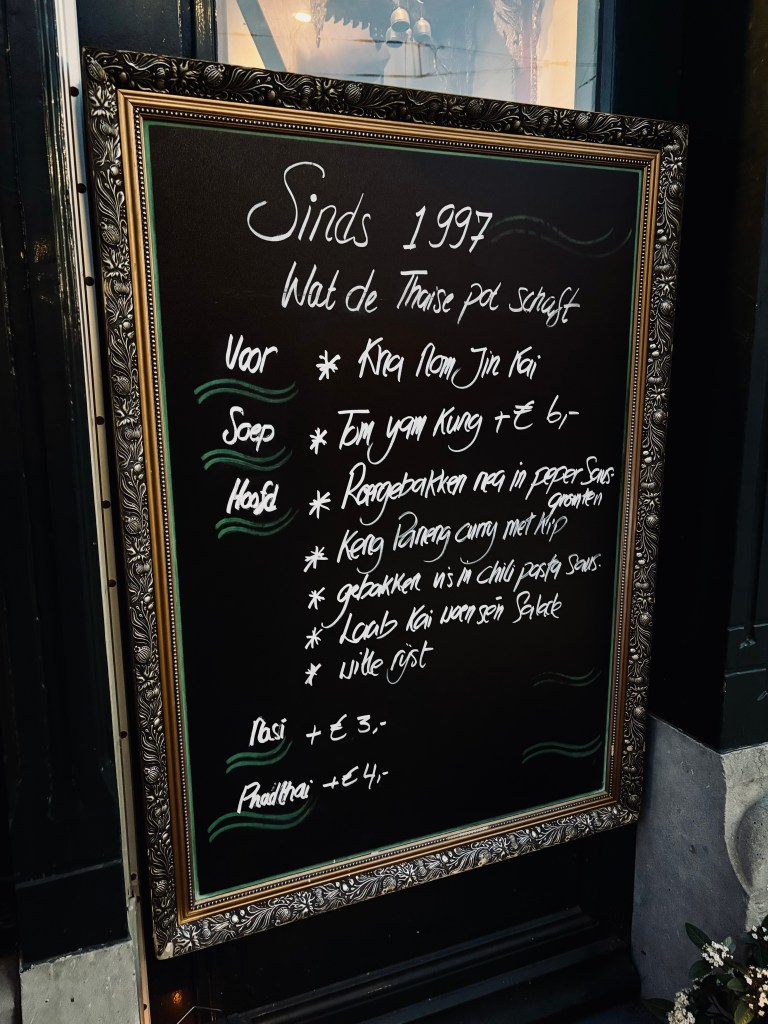 Sinds 1997
Wat de Thaise pot schaft
Voor * Kha Nam Jin Kai
Soep * Tom yam Kung + € 6,-
Hoofd * Roergebakken nea in peper Saus
groenten
* Keng Paneng curry met kip
* gebakken vis in chili pasta Saus.
* Laab Kai woensen Salade
* witte rijst
Nasi + € 3,-
Phadthai + € 4,-